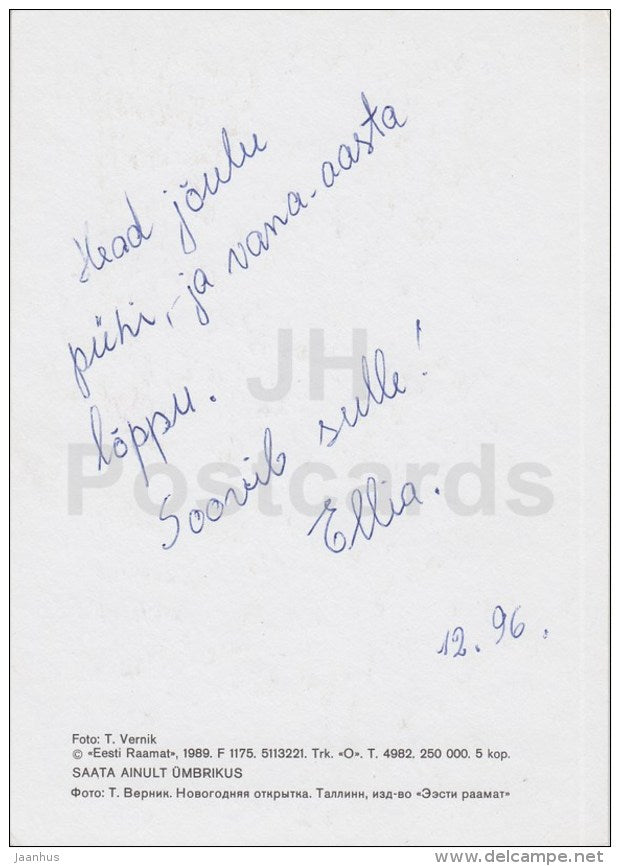 Head jõulu
pühi, ja vana-aasta
lõppu.
Soovib sulle!
Ellia.
12.96.
JH
Postcards
Foto: T. Vernik
© «Eesti Raamat», 1989. F 1175. 5113221. Trk. «O». T. 4982. 250 000. 5 kop.
SAATA AINULT ÜMBRIKUS
Фото: Т. Верник. Новогодняя открытка. Таллинн, изд-во «Ээсти раамат»
jaanhus
delcampe.net